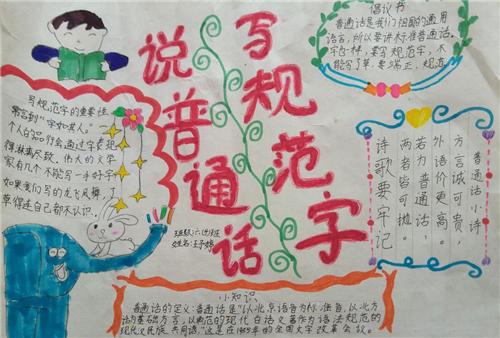 说普通话
写规范字
倡议书
普通话是我们祖国的通用
语言,所以要讲标准普通话。
字包样,要写规范字,不
能写了草。要端正,规范
写规范字的重要性
常言到"字如其人"。
个人的品行会通过字表现
得淋漓尽致,伟大的文学
家有几个不能写一手好字
如果我们写的龙飞凤舞,了
草得连自己都不认识。
班级:六(七)班
姓名:王予嫱
普通话小诗
方言诚可贵,
外语价更高。
若为普通话,
两者皆可抛。
诗歌要牢记
小知识
普通话的定义:普通话是"以北京语音为标准音,以北方
话为基础方言,以典范的现代白话文著作为语法规范的
现代汉民族共同语",这是在1955年的全国文字改革会议。